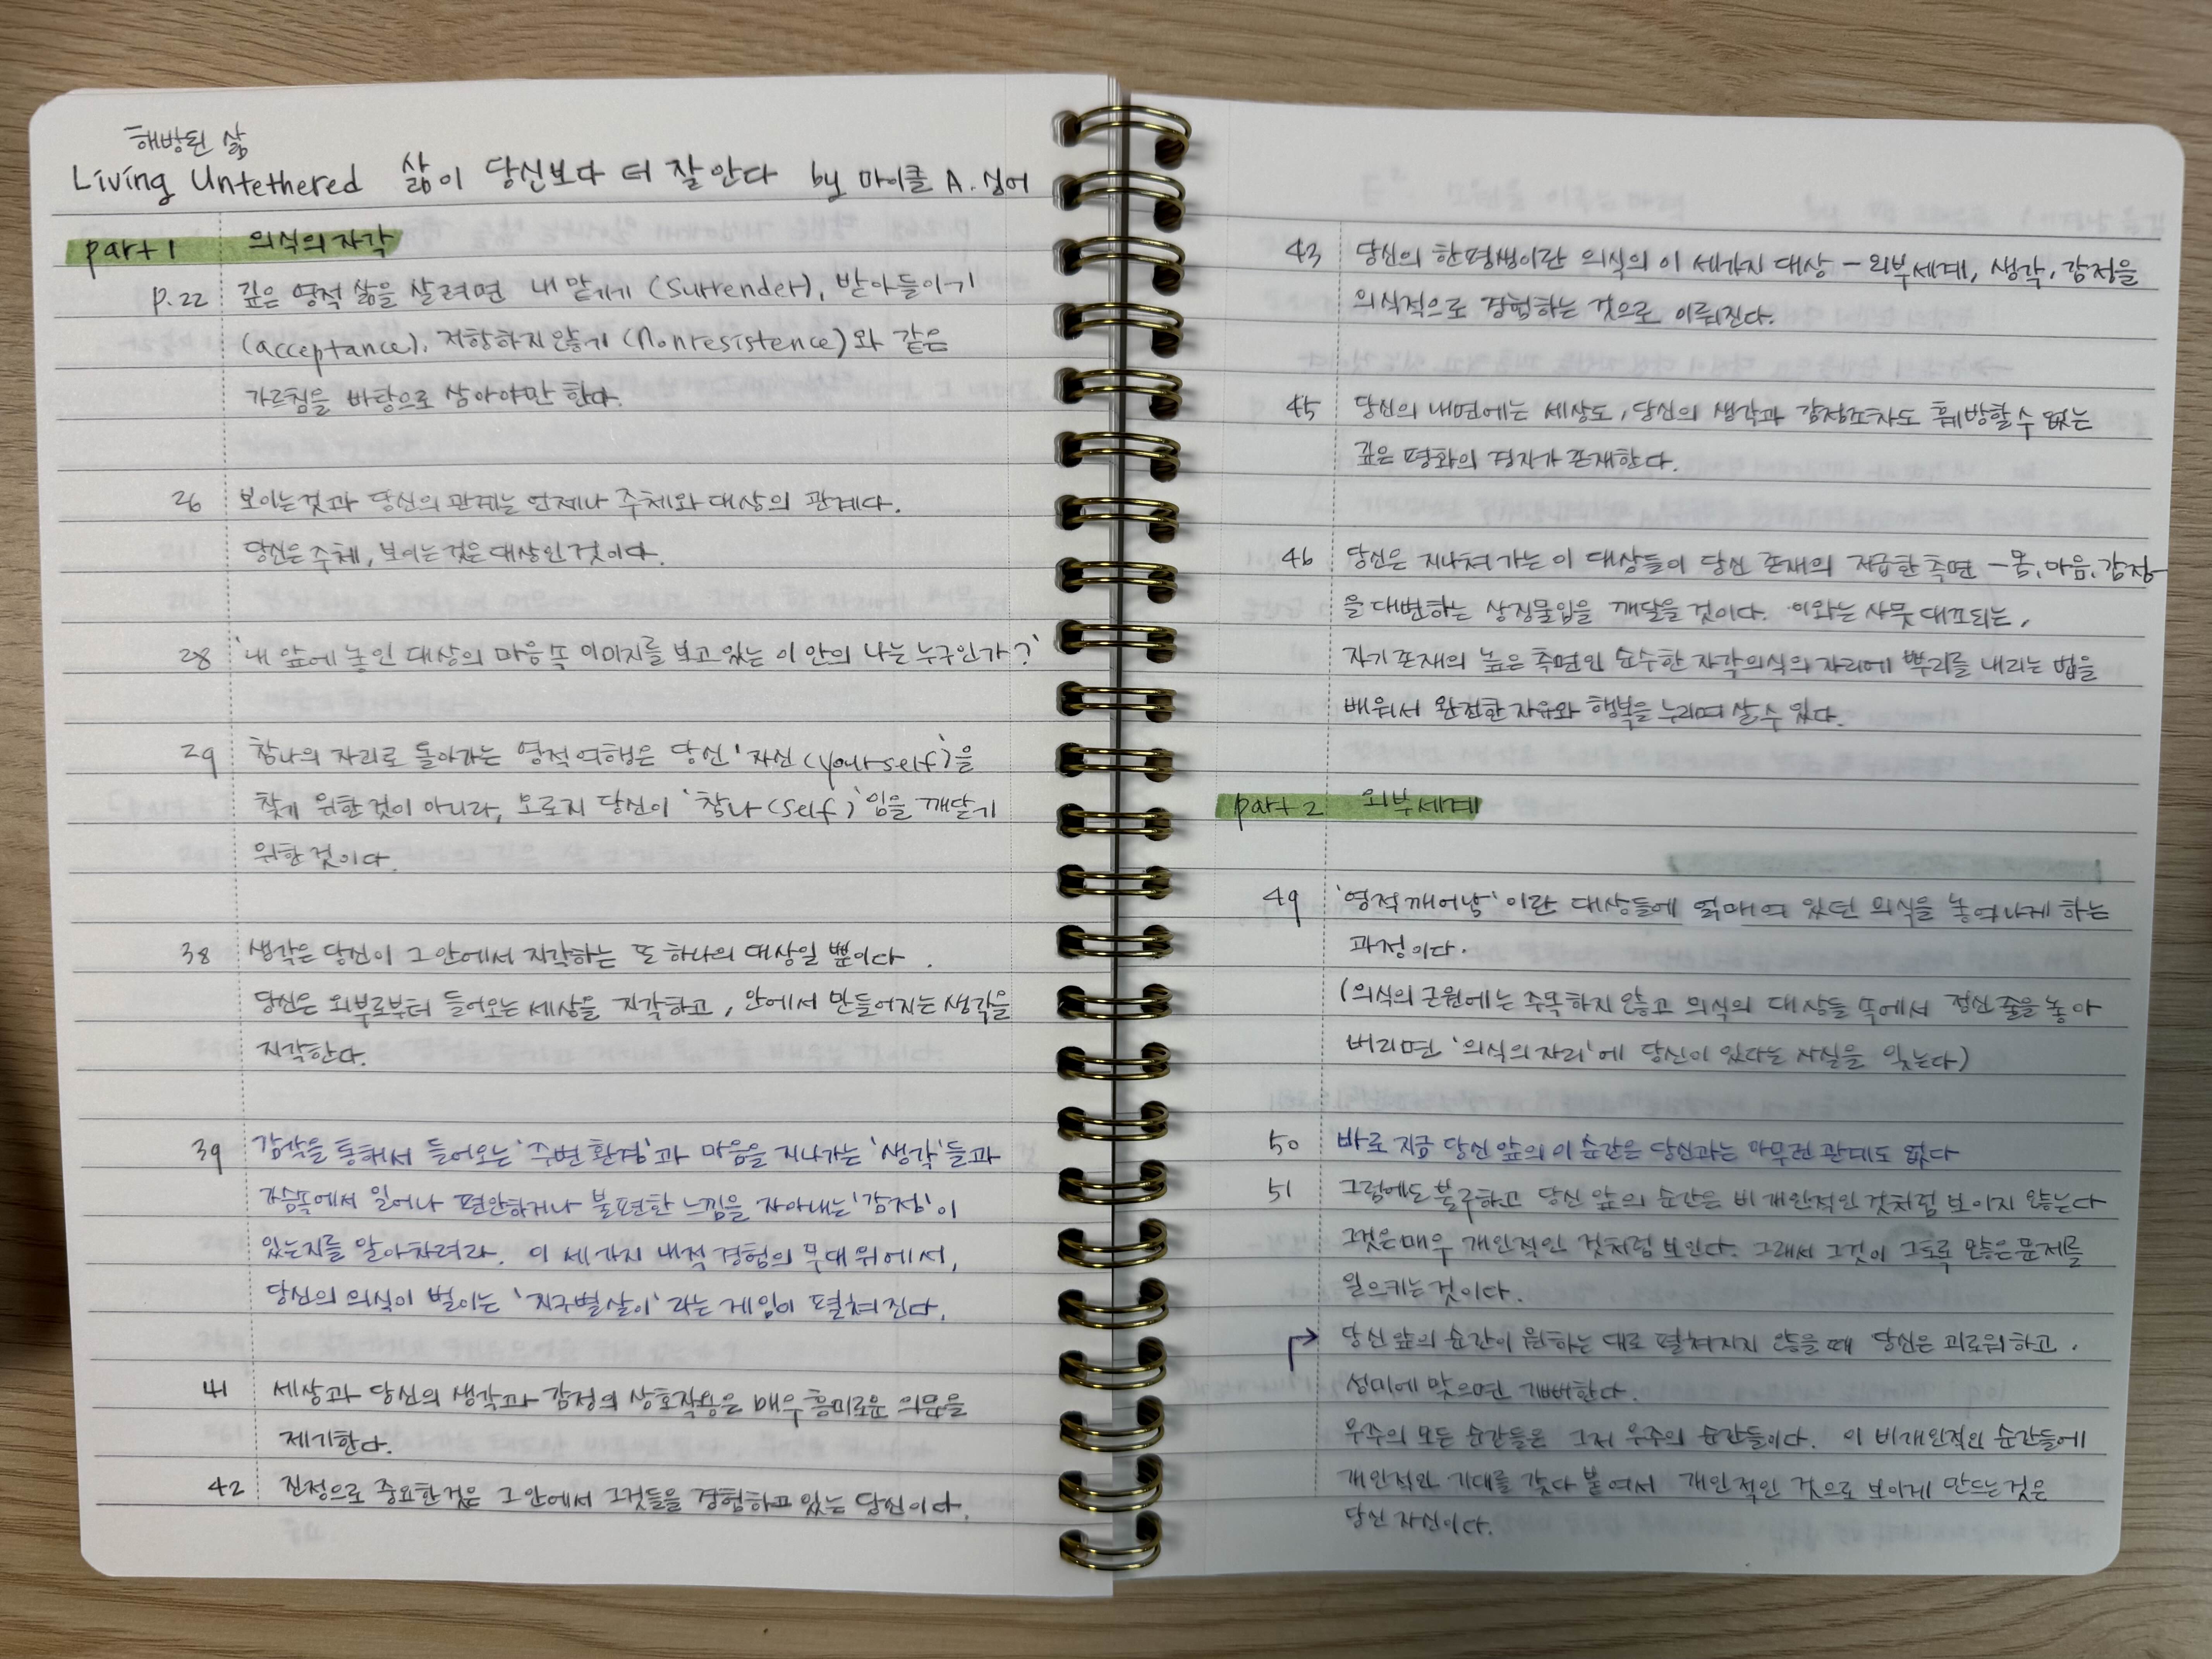 해방된 삶
Living Untethered 삶이 당신보다 더 잘 안다 by 마이클 A. 싱어
part 1 의식의 자각
p.22 깊은 영적 삶을 살려면 내맡기기 (Surrender), 받아들이기
(acceptance), 저항하지 않기 (Nonresistence)와 같은
가르침을 바탕으로 삼아야만 한다.
26 보이는 것과 당신의 관계는 언제나 주체와 대상의 관계다.
당신은 주체, 보이는 것은 대상인 것이다.
28 '내 앞에 놓인 대상의 마음 속 이미지를 보고 있는 이 안의 나는 누구인가?'
29 참나의 자리로 돌아가는 영적 여행은 당신 '자신 (yourself)'을
찾기 위한 것이 아니라, 오로지 당신이 '참나 (self)'임을 깨닫기
위한 것이다.
38 생각은 당신이 그 안에서 지각하는 또 하나의 대상일 뿐이다.
당신은 외부로부터 들어오는 세상을 지각하고, 안에서 만들어지는 생각을
지각한다.
39 감각을 통해서 들어오는 '주변 환경'과 마음을 지나가는 '생각'들과
가슴속에서 일어나 편안하거나 불편한 느낌을 자아내는 '감정'이
있는지를 알아차려라. 이 세 가지 내적 경험의 무대 위에서,
당신의 의식이 벌이는 '지구별 살이'라는 게임이 펼쳐진다.
41 세상과 당신의 생각과 감정의 상호작용은 매우 흥미로운 의문을
제기한다.
42 진정으로 중요한 것은 그 안에서 그것들을 경험하고 있는 당신이다.
43 당신의 한평생이란 의식의 이 세가지 대상 - 외부세계, 생각, 감정을
의식적으로 경험하는 것으로 이뤄진다.
45 당신의 내면에는 세상도, 당신의 생각과 감정조차도 훼방할 수 없는
깊은 평화의 경지가 존재한다.
46 당신은 지나쳐 가는 이 대상들이 당신 존재의 저급한 측면 - 몸, 마음, 감정
을 대변하는 상징물임을 깨달을 것이다. 이와는 사뭇 대조되는,
자기 존재의 높은 측면인 순수한 자각의식의 자리에 뿌리를 내리는 법을
배워서 완전한 자유와 행복을 누리며 살 수 있다.
part 2 외부세계
49 '영적 깨어남'이란 대상들에 얽매여 있던 의식을 놓여나게 하는
과정이다.
(의식의 근원에는 주목하지 않고 의식의 대상들 속에서 정신 줄을 놓아
버리면 '의식의 자리'에 당신이 있다는 사실을 잊는다)
50 바로 지금 당신 앞의 이 순간은 당신과는 아무런 관계도 없다
51 그럼에도 불구하고 당신 앞의 순간은 비개인적인 것처럼 보이지 않는다
그것은 매우 개인적인 것처럼 보인다. 그래서 그것이 그토록 많은 문제를
일으키는 것이다.
→ 당신 앞의 순간이 원하는 대로 펼쳐지지 않을 때 당신은 괴로워하고,
성미에 맞으면 기뻐한다.
우주의 모든 순간들은 그저 우주의 순간들이다. 이 비개인적인 순간들에
개인적인 기대를 갖다 붙여서 개인적인 것으로 보이게 만드는 것은
당신 자신이다.